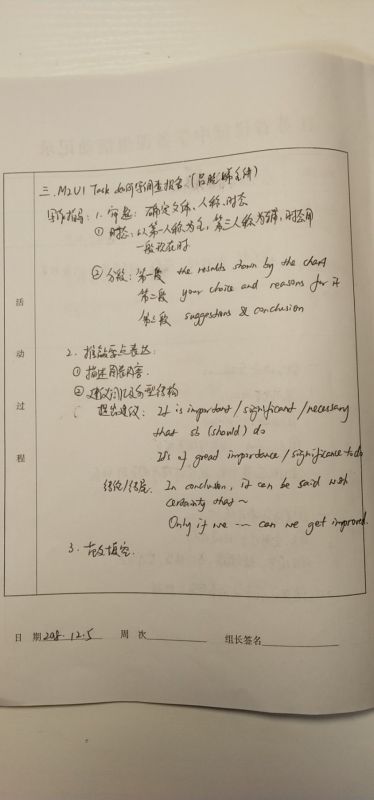 三. M2U1 Task 如何写调查报告 (吕晓娣主讲)
写作指导: 1. 审题: 确定文体、人称、时态
① 时态: 以第一人称为主, 第三人称为辅, 时态用
一般现在时
② 分段: 第一段 the results shown by the chart
第二段 your choice and reasons for it
第三段 suggestions & conclusion
2. 推敲要点表达:
① 描述图表内容.
② 建议词汇及句型结构
提出建议: It is important / significant / necessary
that sb (should) do
It's of great importance / significance to do
结论/结尾. In conclusion, it can be said with
certainty that ~
Only if we --- can we get improved.
3. 范文填空.
活
动
过
程
日 期 2018. 12.5 周 次 组长签名